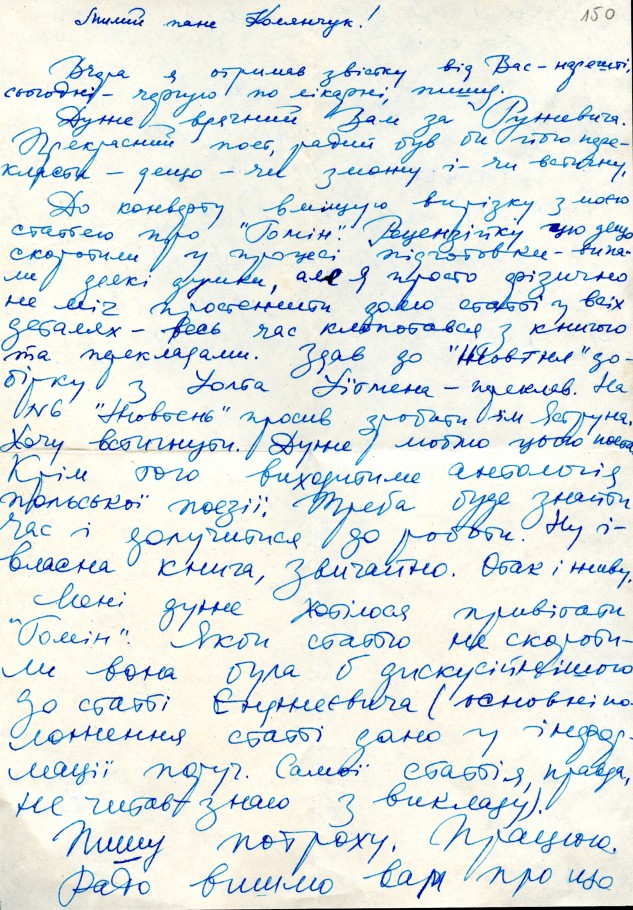 150
Милий пане Комянчук!
Вчора я отримав звістку від Вас – нарешті,
сьогодні – чергую по лікарні, пишу.
Дуже вдячний Вам за Ружевича.
Прекрасний поет, радий був би його пере-
класти – дещо – чи зможу і – чи встигну.
До конверту вміщую вирізку з моєю
статтею про "Гомін". Рецензійку цю дещо
скоротили у процесі підготовки – випа-
ли деякі думки, але я просто фізично
не міг простежити долю статті у всіх
деталях – весь час клопотався з книгою
та перекладами. Здав до "Жовтня" до-
бірку з Уолта Уітмена – переклав. На
№6 "Жовтень" просив зробити їм Яструна.
Хочу встигнути. Дуже люблю цього поета
Крім того виходитиме антологія
польської поезії. Треба буде знайти
час і долучитися до роботи. Ну і –
власна книга, звичайно. Отак і живу.
Мені дуже хотілося привітати
"Гомін". Якби статтю не скороти-
ли вона була б дискусійнішою
до статті Єнджеєвича (основні по-
ложення статті дано у інфор-
мації поруч. Самої статті я, правда,
не читав – знаю з викладу).
Пишу потроху. Працюю.
Радо вишлю вам про що